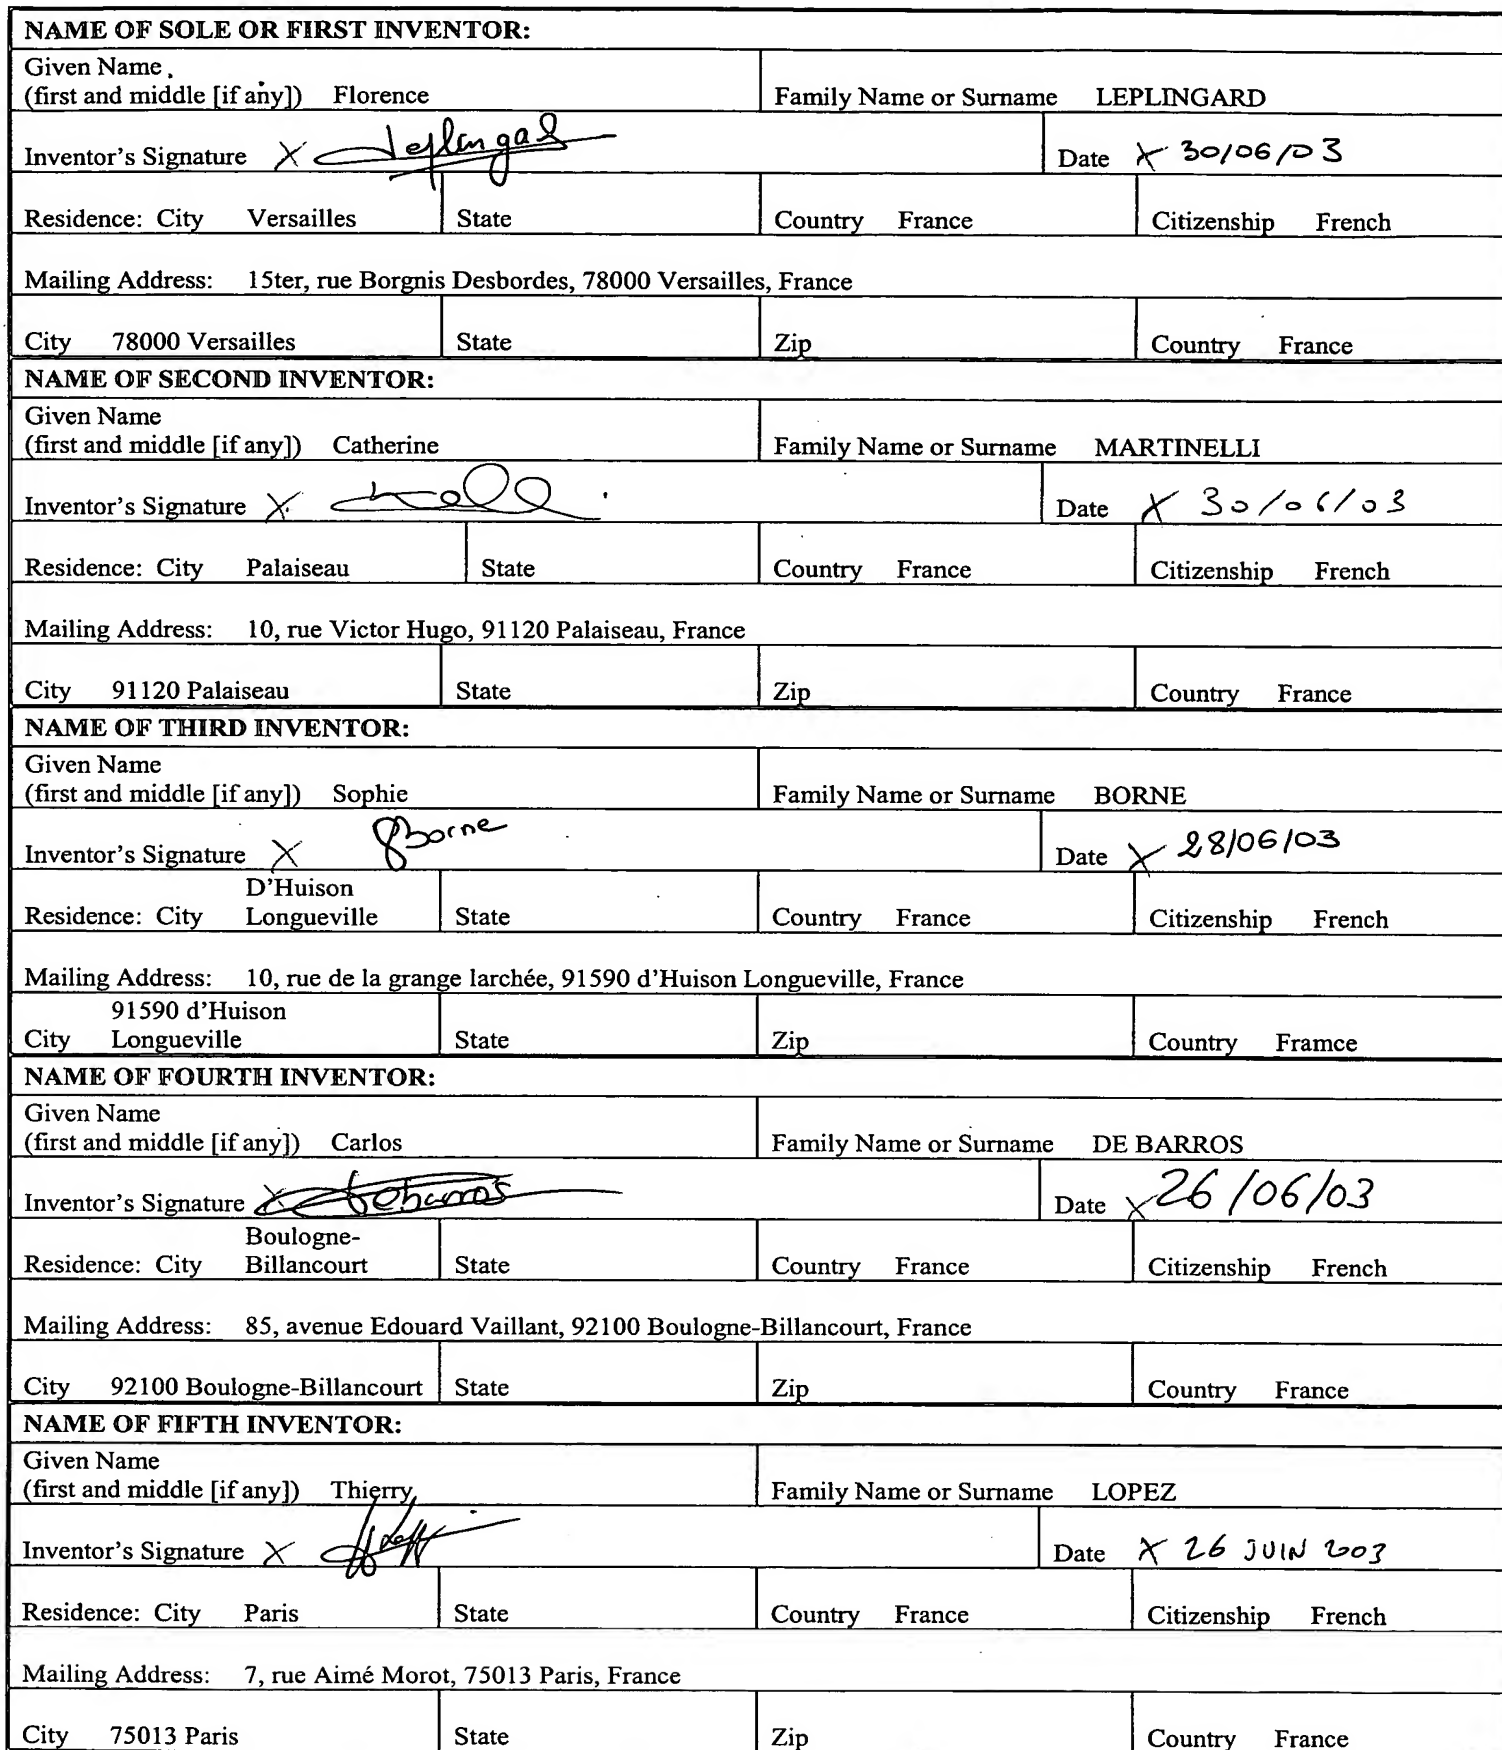 NAME OF SOLE OR FIRST INVENTOR:
Given Name
(first and middle [if any]) Florence Family Name or Surname LEPLINGARD
Inventor's Signature X Leplingard Date X 30/06/03
Residence: City Versailles State Country France Citizenship French
Mailing Address: 15ter, rue Borgnis Desbordes, 78000 Versailles, France
City 78000 Versailles State Zip Country France
NAME OF SECOND INVENTOR:
Given Name
(first and middle [if any]) Catherine Family Name or Surname MARTINELLI
Inventor's Signature X Date X 30/06/03
Residence: City Palaiseau State Country France Citizenship French
Mailing Address: 10, rue Victor Hugo, 91120 Palaiseau, France
City 91120 Palaiseau State Zip Country France
NAME OF THIRD INVENTOR:
Given Name
(first and middle [if any]) Sophie Family Name or Surname BORNE
Inventor's Signature X SBorne Date X 28/06/03
D'Huison
Residence: City Longueville State Country France Citizenship French
Mailing Address: 10, rue de la grange larchée, 91590 d'Huison Longueville, France
91590 d'Huison
City Longueville State Zip Country Framce
NAME OF FOURTH INVENTOR:
Given Name
(first and middle [if any]) Carlos Family Name or Surname DE BARROS
Inventor's Signature X debarros Date X 26/06/03
Boulogne-
Residence: City Billancourt State Country France Citizenship French
Mailing Address: 85, avenue Edouard Vaillant, 92100 Boulogne-Billancourt, France
City 92100 Boulogne-Billancourt State Zip Country France
NAME OF FIFTH INVENTOR:
Given Name
(first and middle [if any]) Thierry Family Name or Surname LOPEZ
Inventor's Signature X Date X 26 JUIN 2003
Residence: City Paris State Country France Citizenship French
Mailing Address: 7, rue Aimé Morot, 75013 Paris, France
City 75013 Paris State Zip Country France